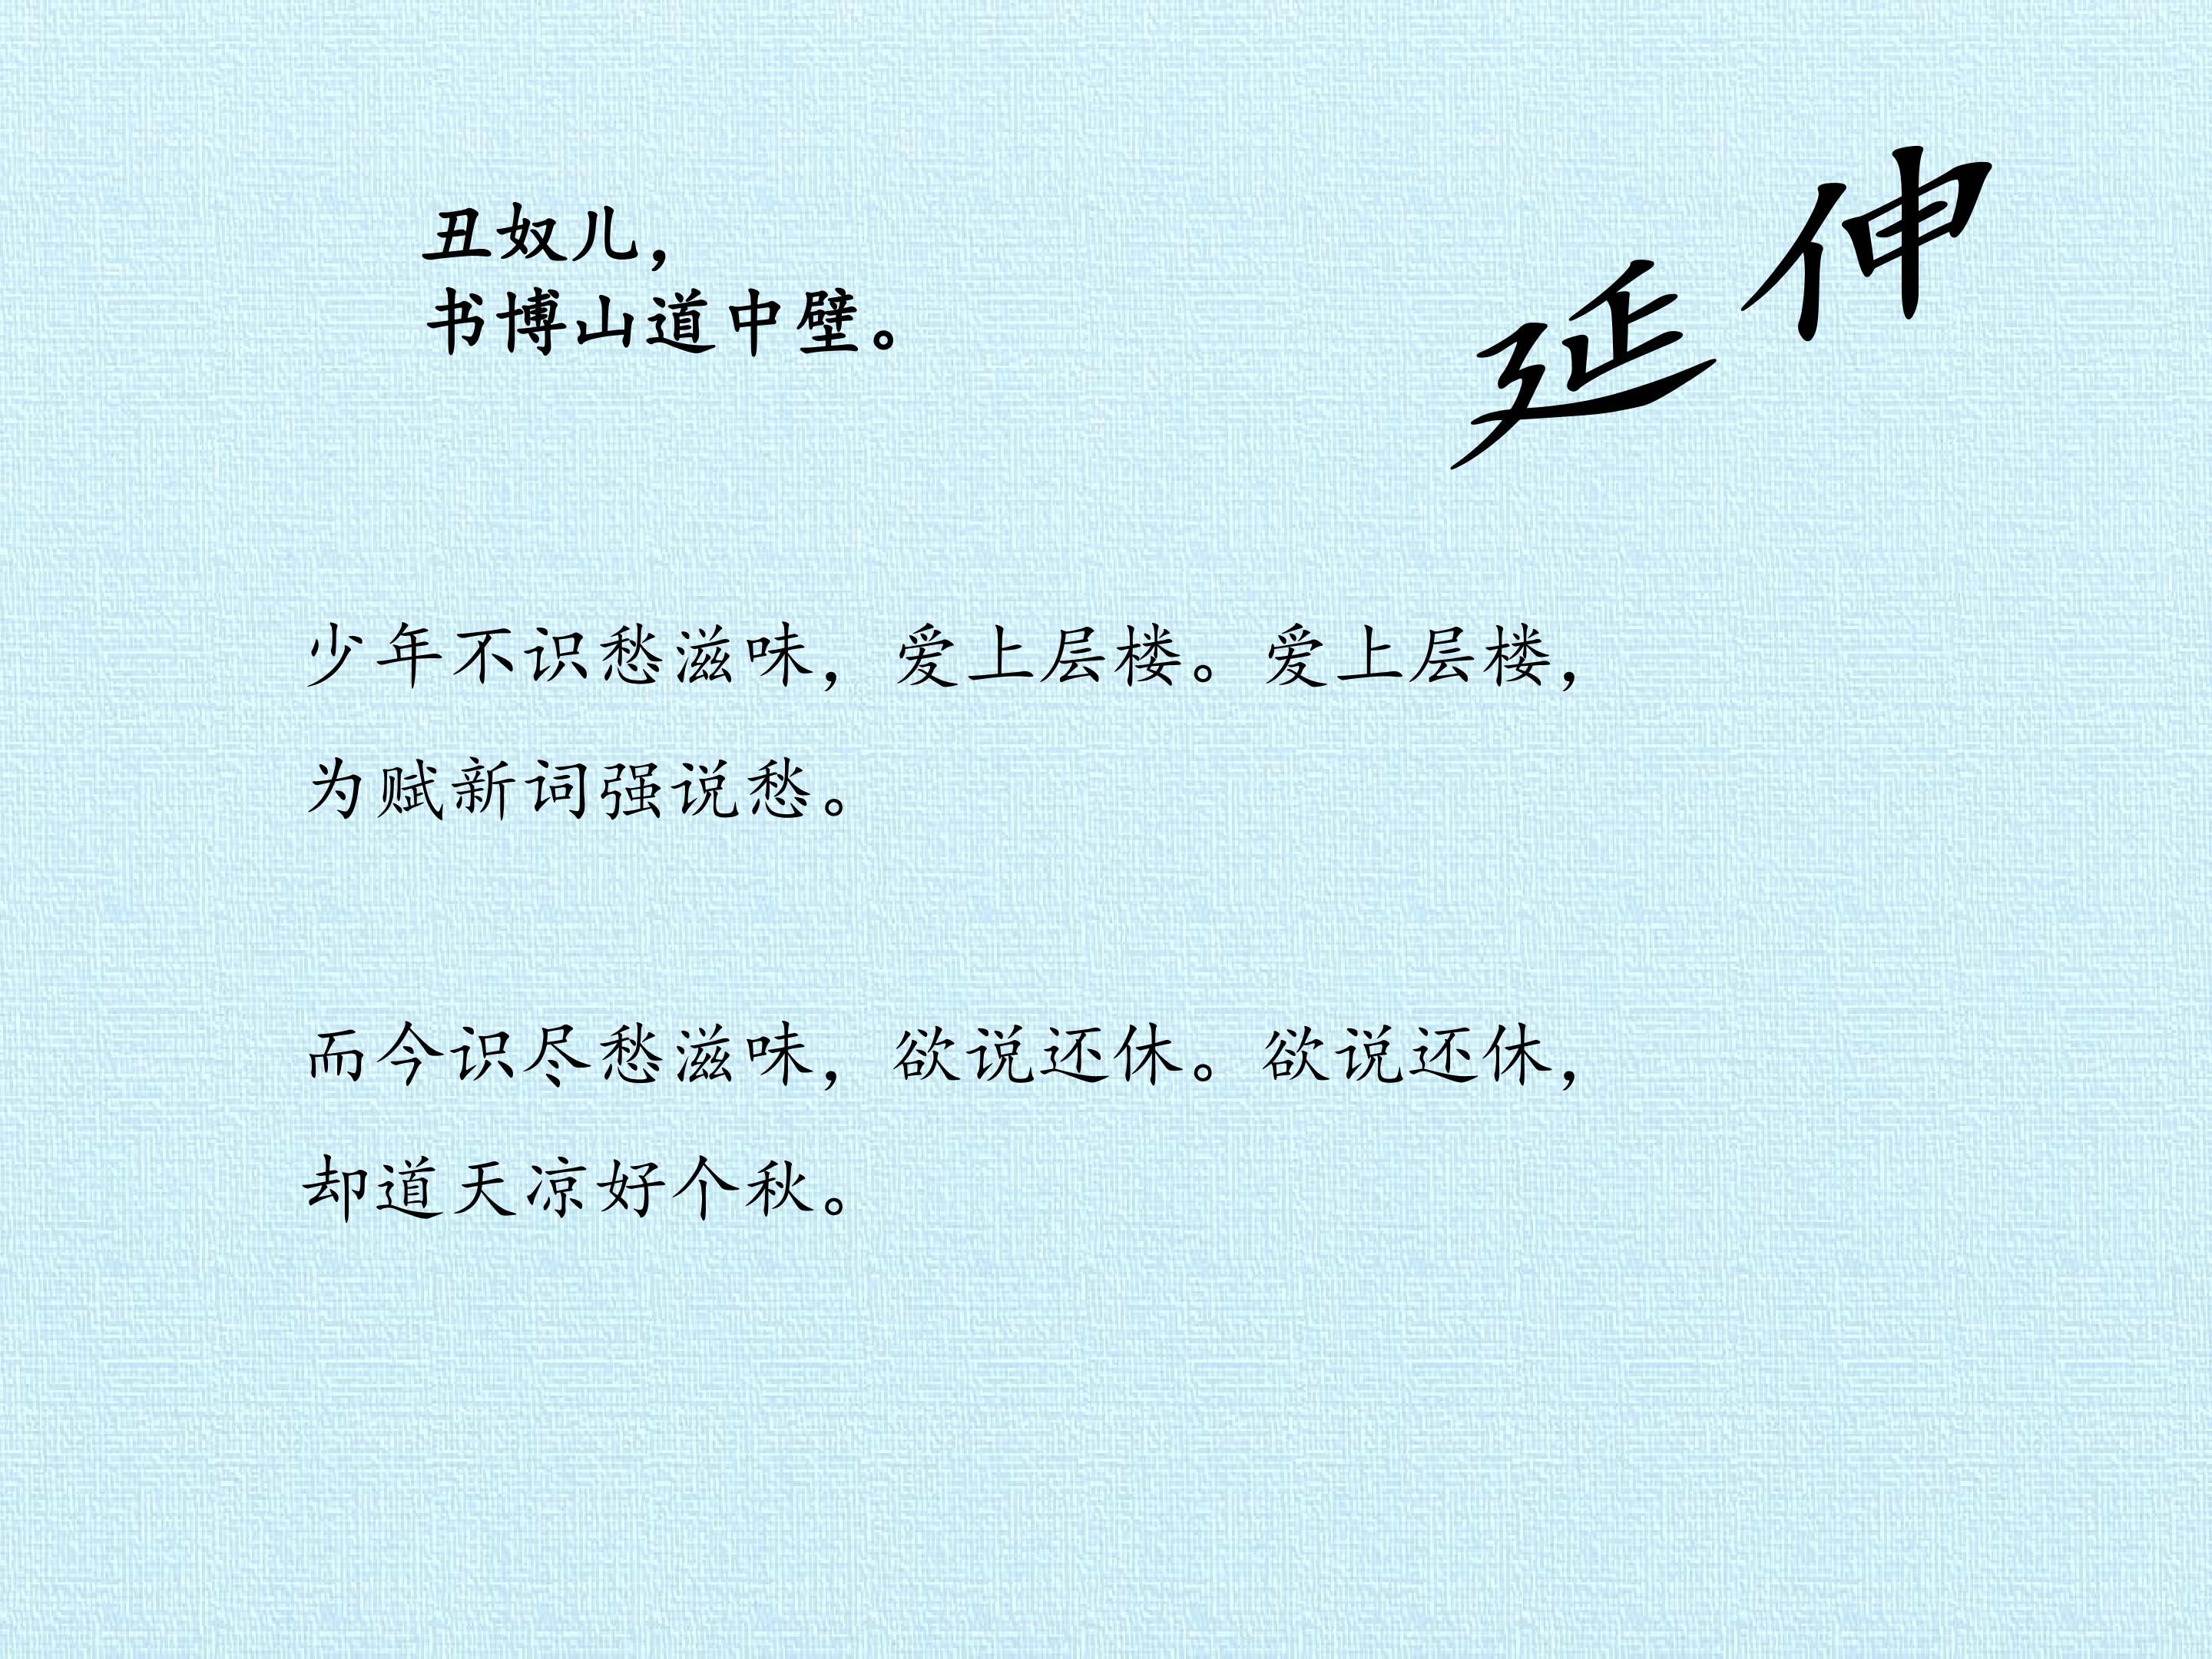 丑奴儿，
书博山道中壁。
延伸
少年不识愁滋味，爱上层楼。爱上层楼，
为赋新词强说愁。
而今识尽愁滋味，欲说还休。欲说还休，
却道天凉好个秋。